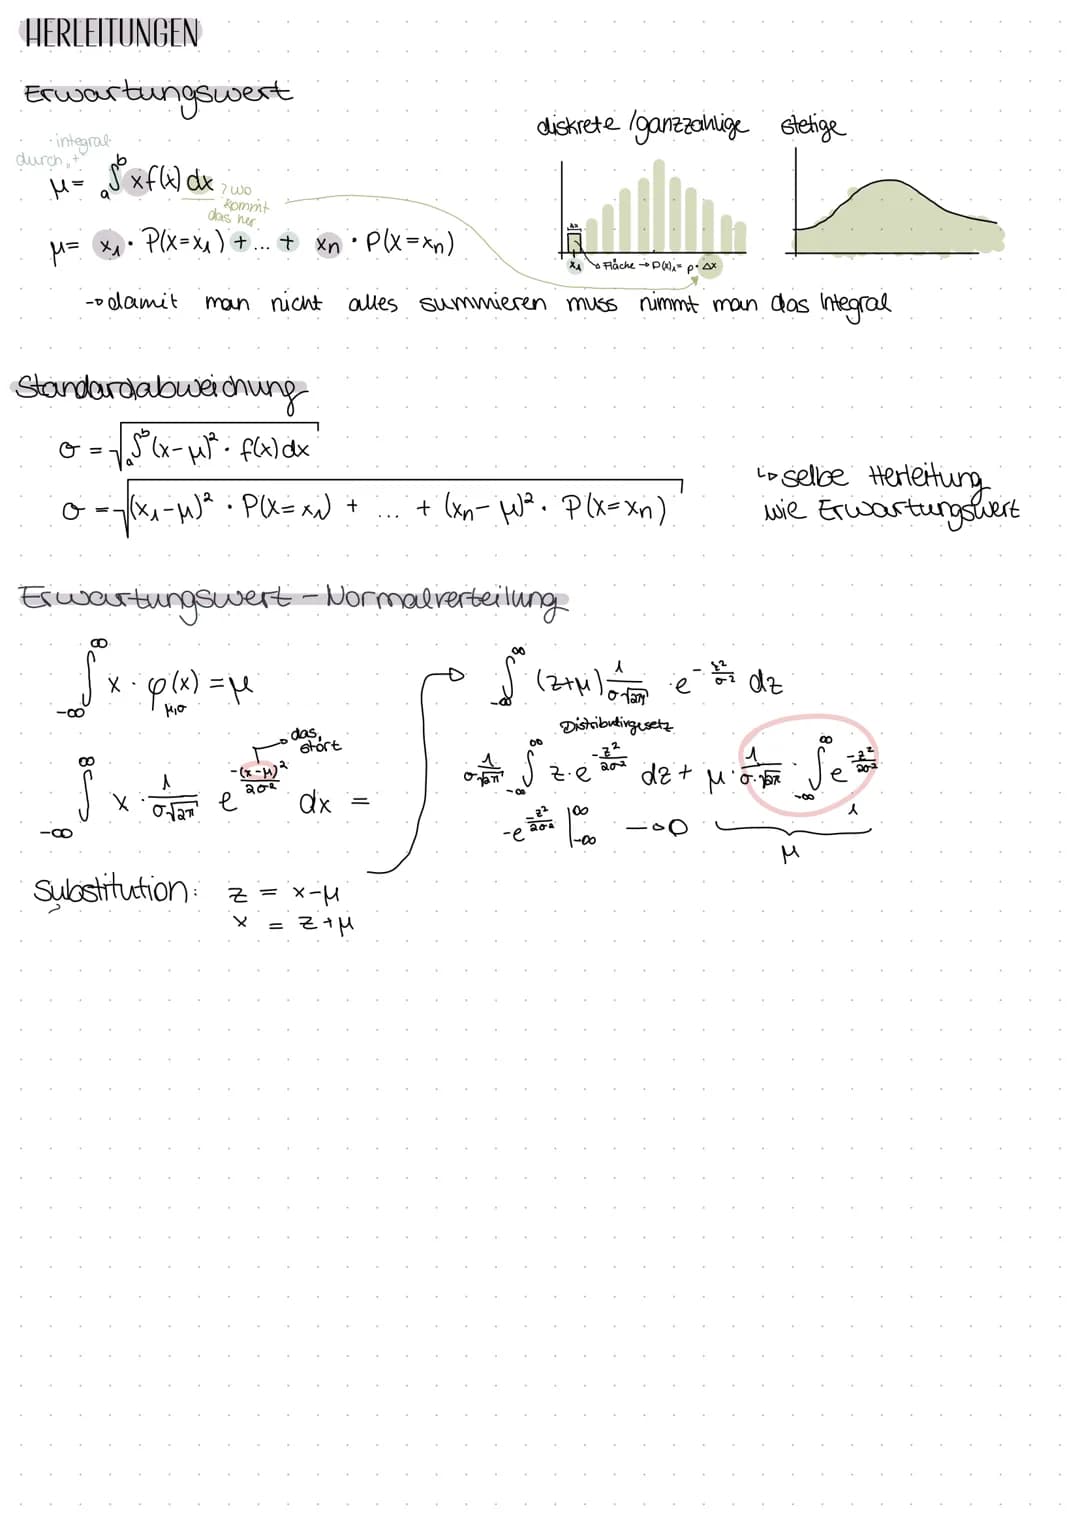 HERLEITUNGEN
Erwartungswert
integral
durch "+"
μ = ₐ∫ᵇ x f(x) dx
? wo
kommt
das her
μ = x₁ · P(X=x₁) + ... + xₙ · P(X=xₙ)
diskrete / ganzzahlige stetige
Δx
x₁ Fläche → P(x)₁ = p · Δx
→ damit man nicht alles summieren muss nimmt man das Integral
Standardabweichung
σ = √(ₐ∫ᵇ (x-μ)² · f(x) dx)
σ = √((x₁-μ)² · P(X=x₁) + ... + (xₙ-μ)² · P(X=xₙ))
↳ selbe Herleitung
wie Erwartungswert
Erwartungswert - Normalverteilung
∫_{-∞}^{∞} x · φ_{μ,σ}(x) = μ
das
stört
∫_{-∞}^{∞} x · 1/(σ√2π) e^{-(x-μ)²/2σ²} dx =
Substitution: z = x-μ
x = z+μ
∫_{-∞}^{∞} (z+μ) 1/(σ√2π) · e^{-z²/σ²} dz
Distributivgesetz
1/(σ√2π) ∫_{-∞}^{∞} z · e^{-z²/2σ²} dz + μ · 1/(σ·√2π) · ∫_{-∞}^{∞} e^{-z²/2σ²}
-e^{-z²/2σ²} |_{-∞}^{∞} → 0 1
μ